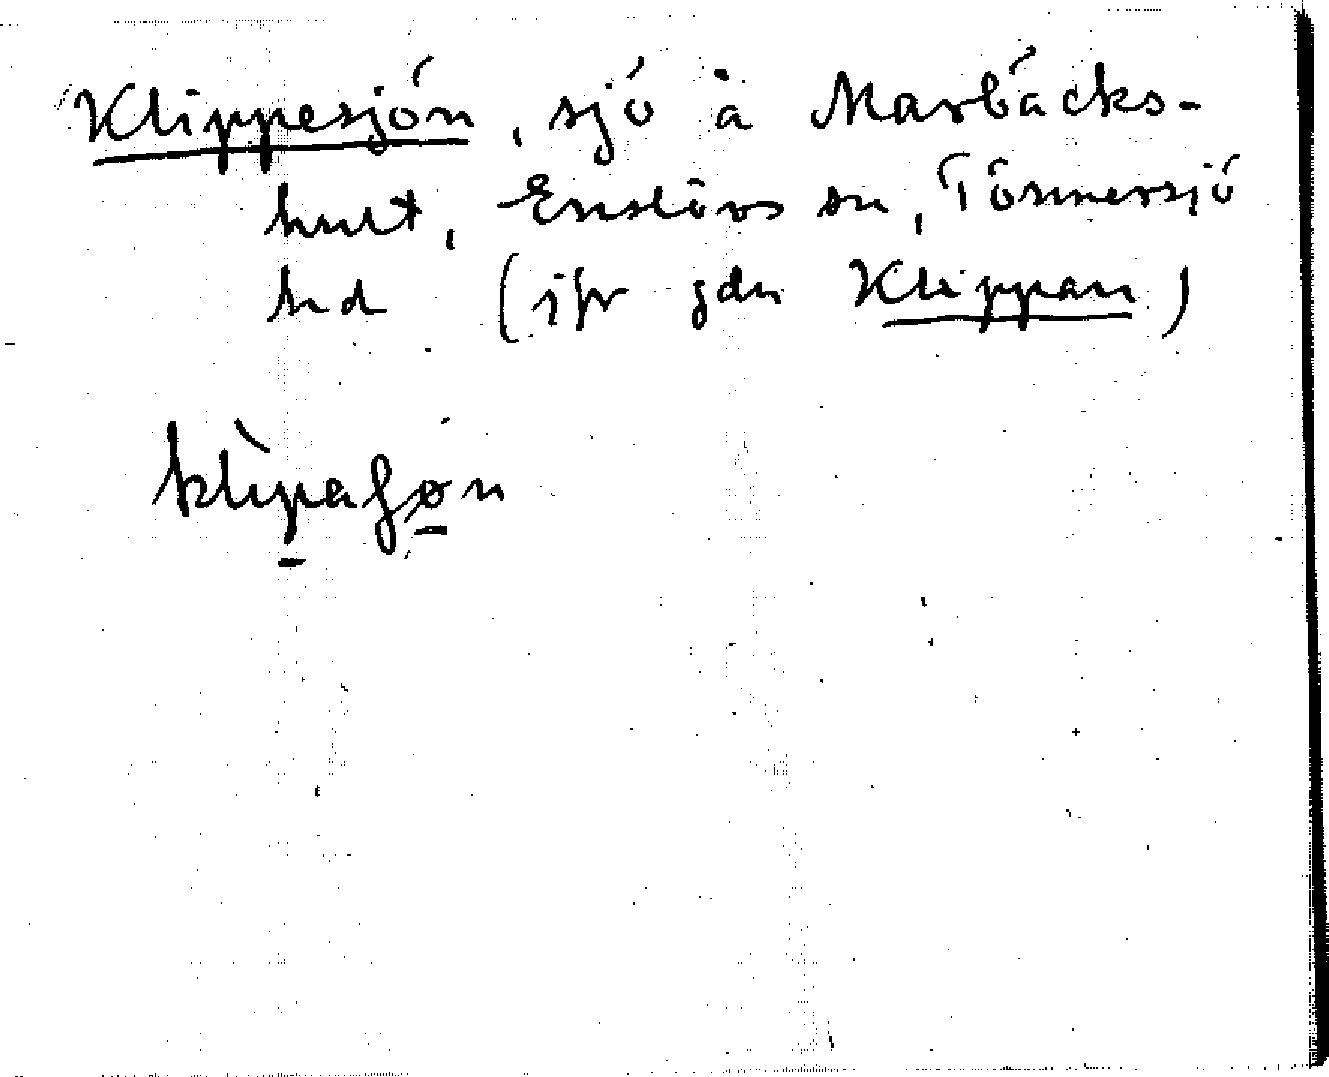 Klippesjön, sjö å Marbäcks-
hult, Enslövs sn, Tönnersjö
hd (jfr gdn Klippan)
klìpaʃøn